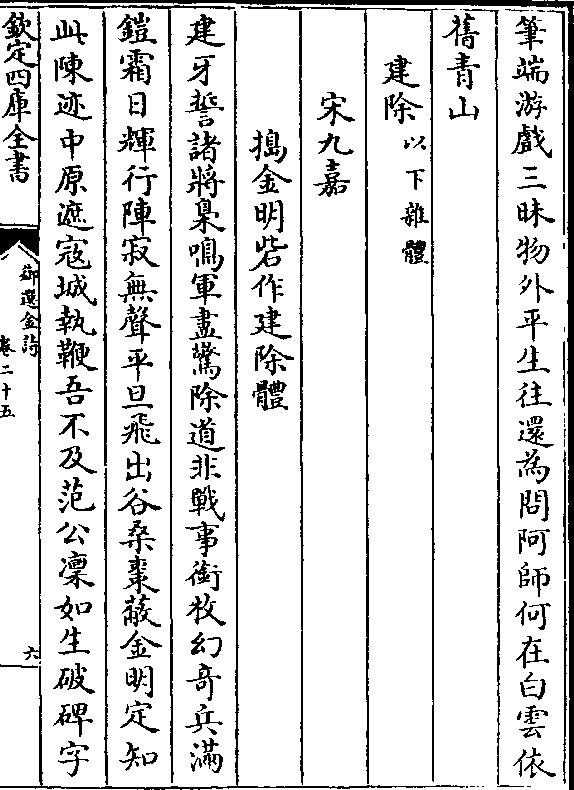 筆端游戲三昧物外平生往還為問阿師何在白雲依
舊青山
建除以下雜體
宋九嘉
搗金明砦作建除體
建牙誓諸將梟鳴軍盡驚除道非戰事銜枚幻奇兵滿
鎧霜日輝行陣寂無聲平旦飛出谷桑棗蔽金明定知
此陳迹中原遮寇城執鞭吾不及范公凜如生破碑字
欽定四庫全書
御選金詩
卷二十五
六